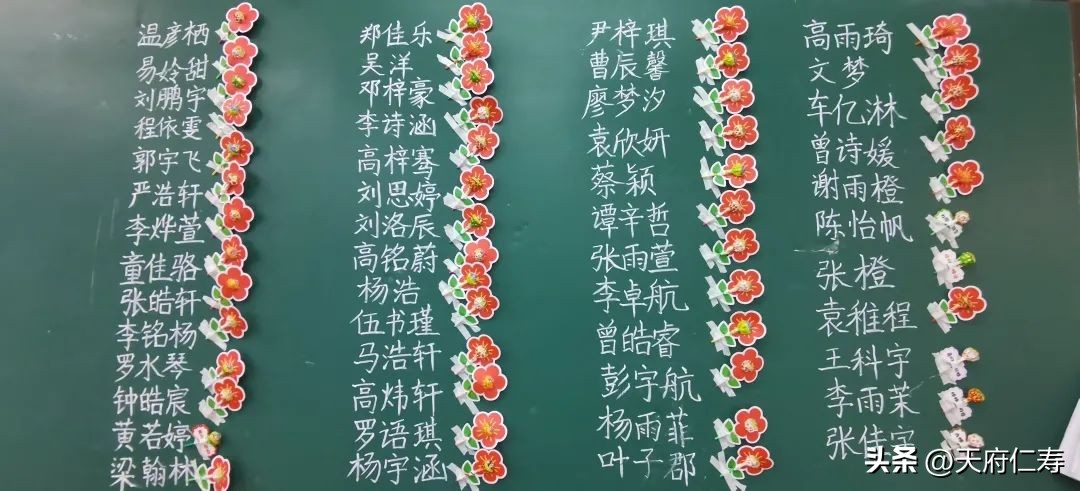 温彦栖
易姈甜
刘鹏宇
程依雯
郭宇飞
严浩轩
李烨萱
童佳骆
张皓轩
李铭杨
罗水琴
钟皓宸
黄若婷
梁翰林
郑佳乐
吴洋
邓梓豪
李诗涵
高梓骞
刘思婷
刘洛辰
高铭蔚
杨浩
伍书瑾
马浩轩
高炜轩
罗语琪
杨宇涵
尹梓琪
曹辰馨
廖梦汐
袁欣妍
蔡颖
谭辛哲
张雨萱
李卓航
曾皓睿
彭宇航
杨雨菲
叶子郡
高雨琦
文梦
车亿淋
曾诗媛
谢雨橙
陈怡帆
张橙
袁稚程
王科宇
李雨茉
张佳宇
头条 @天府仁寿